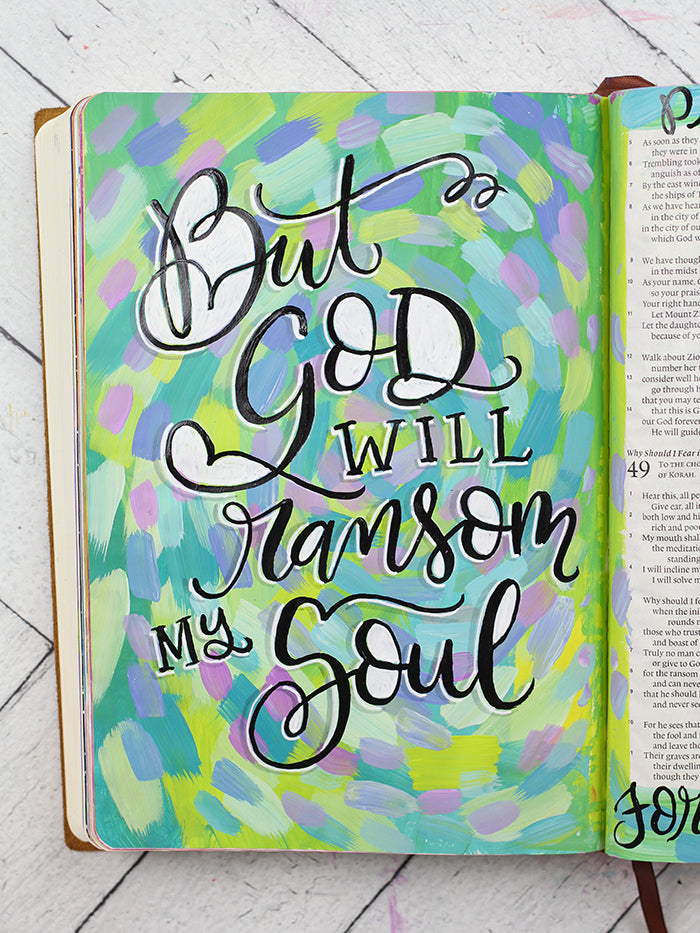 But
GOD
WILL
ransom
My Soul
5 As soon as they
they were in
Trembling took
anguish as of
7 By the east win
the ships of T
8 As we have hear
in the city of
in the city of ou
which God w
9 We have though
in the midst
10 As your name, O
so your prais
Your right hand
11 Let Mount Zi
Let the daughte
because of yo
12 Walk about Zion
number her t
13 consider well he
go through h
that you may te
14 that this is G
our God forever
He will guid
Why Should I Fear i
49 TO THE CHO
OF KORAH.
1 Hear this, all peo
Give ear, all in
2 both low and hi
rich and poor
3 My mouth shal
the meditatio
standing
4 I will incline my
I will solve m
Why should I fe
when the ini
rounds m
those who trust
and boast of
Truly no man c
or give to Go
for the ransom
and can neve
that he should
and never see
For he sees that
the fool and
and leave the
Their graves are
their dwellin
though they
FOR